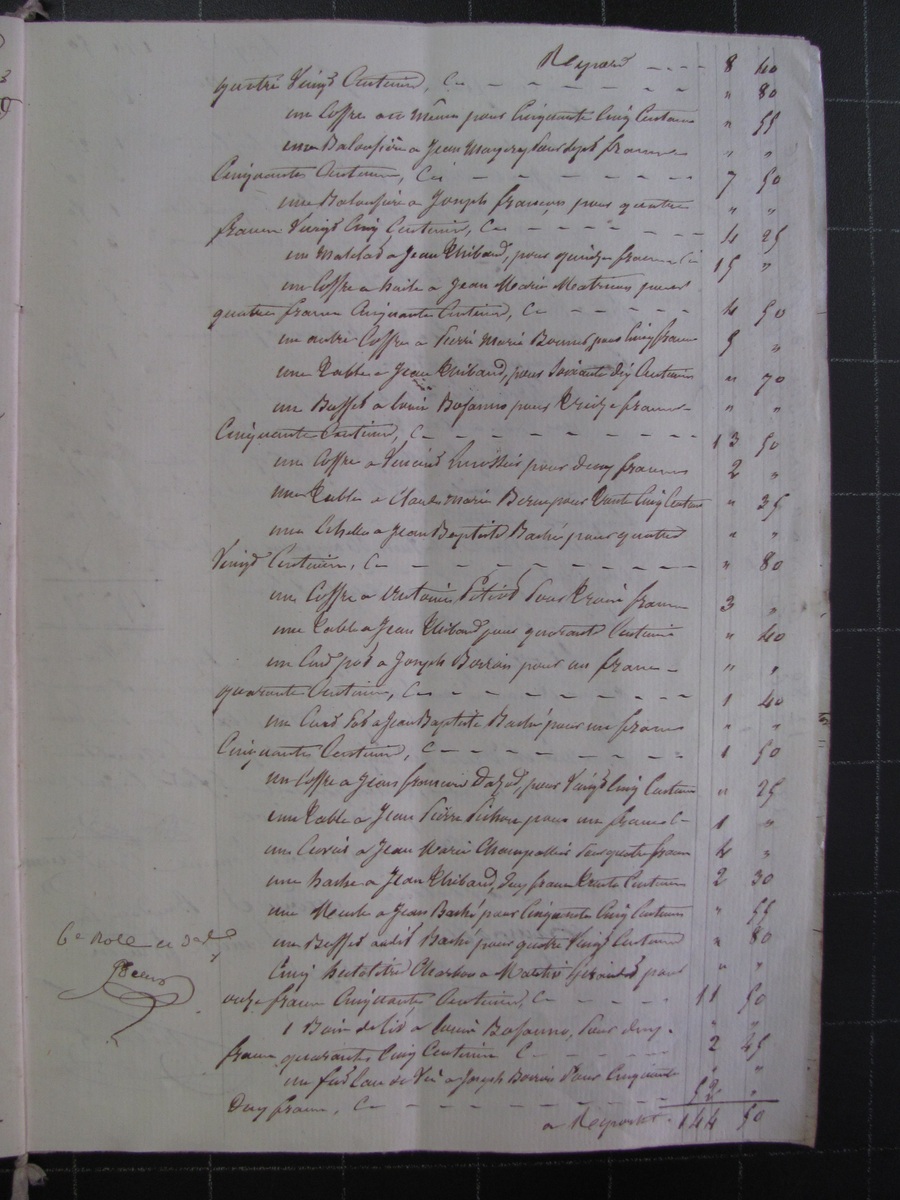 Report ---- 8 40
quatre Vingt Centimes, C - - - - - - " 80
un Coffre au même pour Cinquante Cinq Centimes " 55
une Balonfière a Jean Magery pour Sept francs " "
Cinquantes Centimes, Ci - - - - - - 7 50
une Balonfière a Joseph francois pour quatre " "
francs Vingt Cinq Centimes, C - - - - - - 4 25
un Matelas a Jean Thibaud, pour quinze francs Ci 15 "
un Coffre a a Jean Marie pour
quatre francs Cinquante Centimes, C - - - - - 4 50
un autre Coffre a Pierre Marie pour Cinq francs 5 "
une Table a Jean Thibaud, pour Soixante dix Centimes " 70
un Buffet a Bojanno pour Treize francs " "
Cinquante Centimes, C - - - - - - 13 50
un Coffre a Vincent pour deux francs 2 "
une Table a Claude Marie pour Trente Cinq Centimes " 35
une Echelle a Jean Baptiste Baché pour quatre " "
Vingt Centimes, C - - - - - - " 80
un Coffre a Antoine Pour Trois francs 3 "
une Table a Jean Thibaud pour quarante Centimes " 40
un a Joseph Borron pour un franc " "
quarante Centimes, C - - - - - - 1 40
un a Jean Baptiste Baché pour un franc " "
Cinquante Centimes, C - - - - - - 1 50
un Coffre a Jean francois, pour Vingt Cinq Centimes " 25
une Table a Jean Pierre pour un franc C 1 "
un a Jean Marie pour quatre francs 4 "
une hache a Jean Thibaud, deux francs Trente Centimes 2 30
une Meule a Jean Baché pour Cinquante Cinq Centimes " 55
6e Role
un Buffet audit Baché pour quatre Vingt Centimes " 80
Cinq hectolitres Charbon a pour " "
onze francs Cinquante Centimes, C - - - - - 11 50
1 Bois de lit a Bojanno, Pour deux " "
francs quarante Cinq Centimes C - - - - 2 45
un a Joseph Borron Pour Cinquante " "
Deux francs, C - - - - - - 52 "
a Reporter 144 50